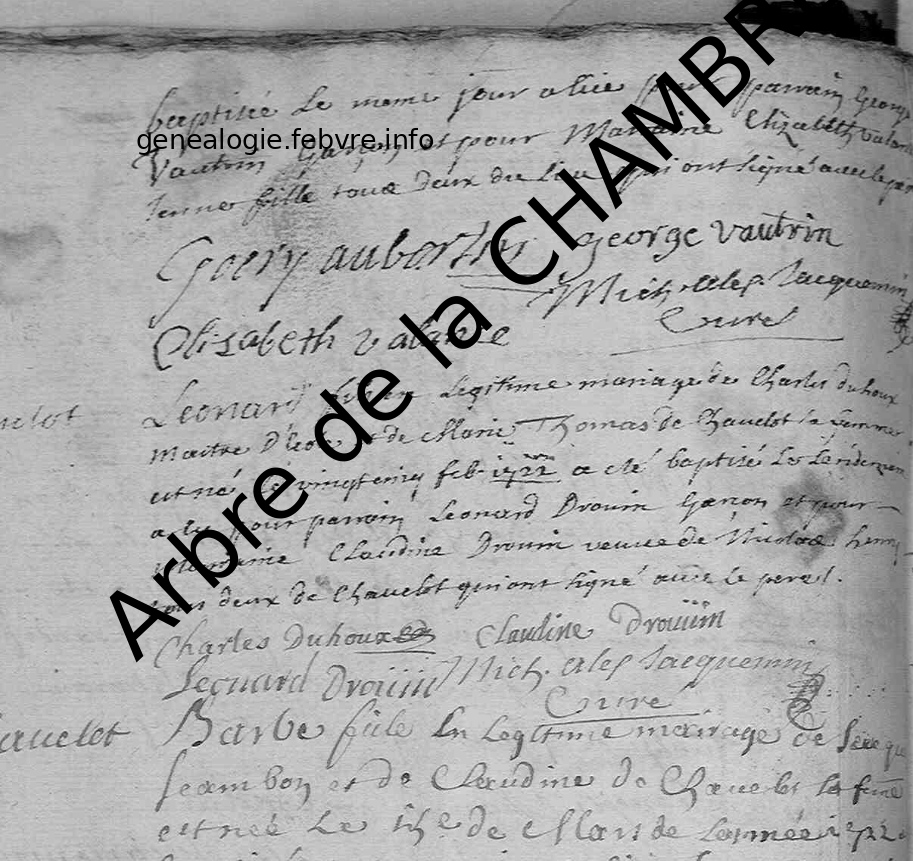 baptisée Le meme jour a Eue pour parrain George
genealogie.febvre.info
Vautrin Garçon et pour Maraine Elizabeth valance
Jenne fille tous deux du Lieu qui ont signé avec le pere
Goery aubertin george vautrin
Mich. alex. Jacquemin
Curé
Elisabeth valance
Arbre de la CHAMBR
Leonard fils en Legitime mariage de Charles duhoux
maitre D'écol et de Marie Thomas de Chavelot sa femme
est né le vingt cinq feb. 1722 a eté baptisé Le Lendemain
a Eu pour parrain Leonard Drouin Garçon et pour
maraine Claudine Drouin veuve de Nicolas henry
tous deux de Chavelot qui ont signé avec le pere
Charles Duhoux Claudine Drouiin
Leonard Drouiin Mich. alex Jacquemin
Curé
chavelot
Barbe fille En Legitime mariage de
et de Claudine de Chavelot sa feme
est neé Le de Mars de Lannée 1722